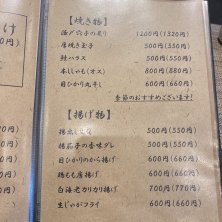 け
0円)
円)
【焼き物】
1200円(1320円)
厚焼き玉子 500円(550円)
鮭ハラス 500円(550円)
本ししゃも(オス) 800円(880円)
目ひかり丸干し 600円(660円)
季節のおすすめございます!
【揚げ物】
揚出し豆腐 500円(550円)
揚茄子の香味ダレ 500円(550円)
目ひかりのから揚げ 600円(660円)
鶏もも唐揚げ 600円(660円)
白海老カリカリ揚げ 700円(770円)
生じゃがフライ 600円(660円)